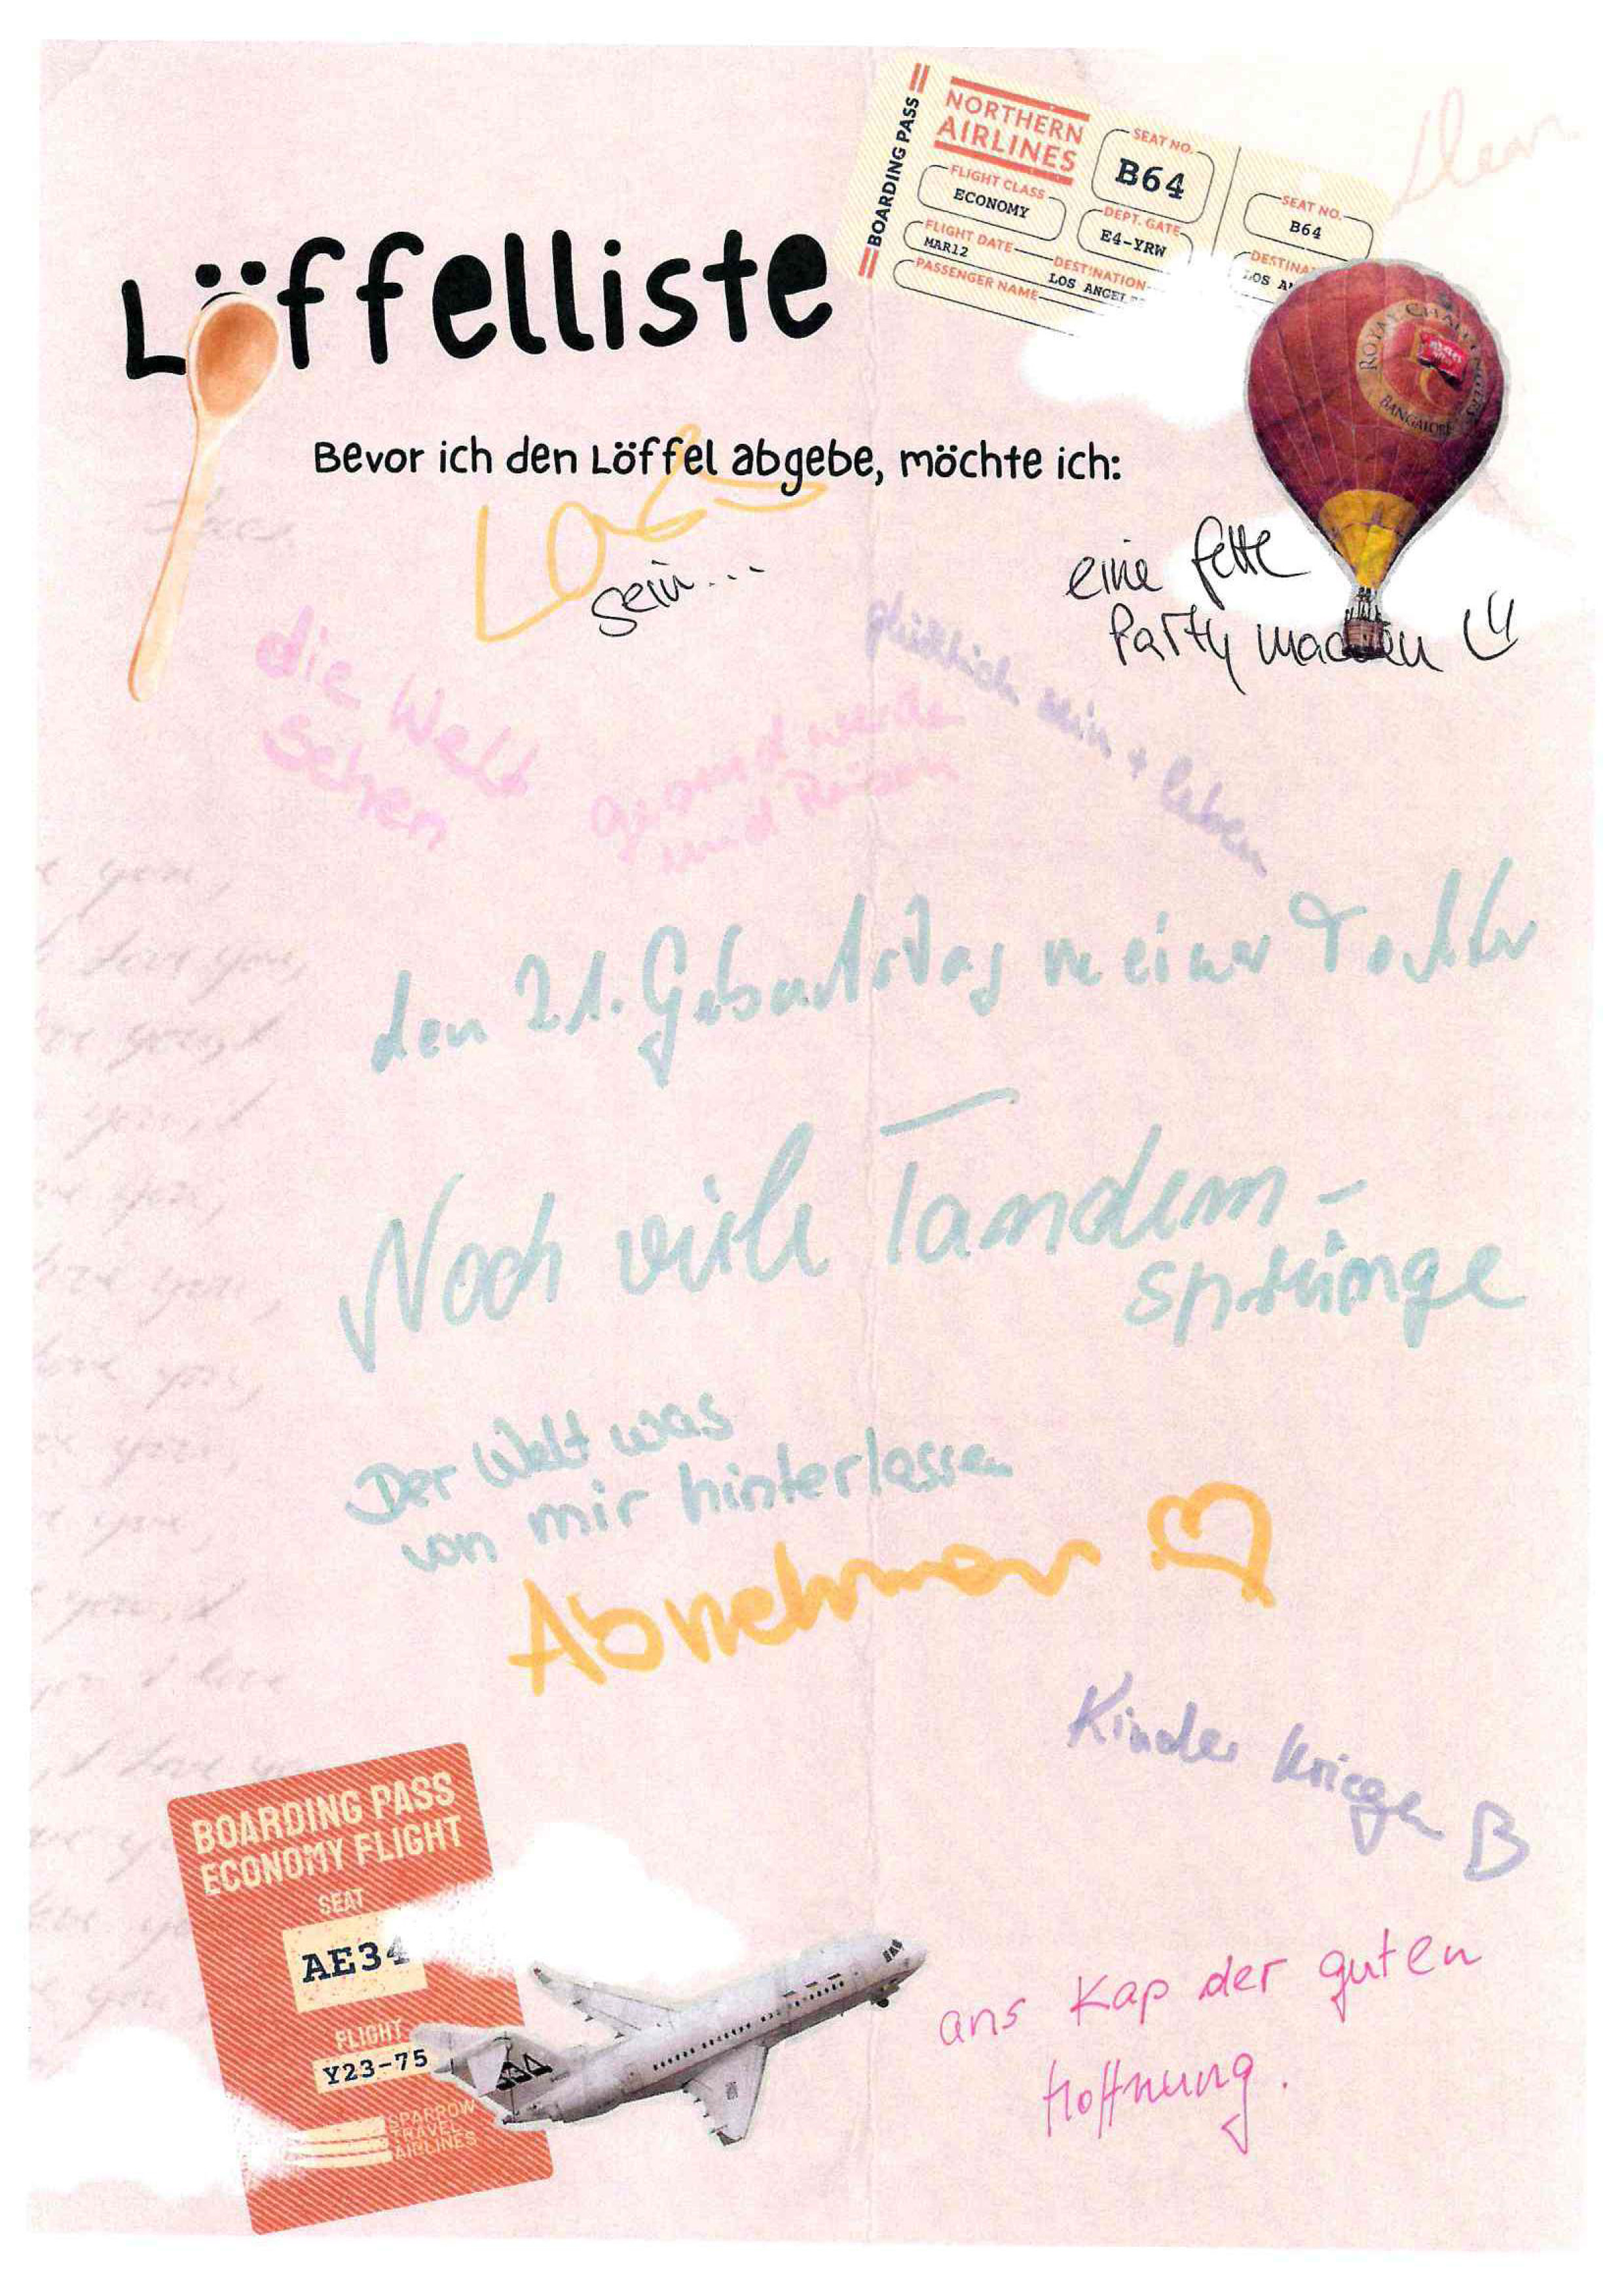 BOARDING PASS
NORTHERN
AIRLINES
SEAT NO.
B64
FLIGHT CLASS
ECONOMY
DEPT. GATE
E4-YRW
FLIGHT DATE
MAR12
DESTINATION
LOS ANGEL
PASSENGER NAME
SEAT NO.
B64
DESTINA
LOS A
Löffelliste
Bevor ich den Löffel abgebe, möchte ich:
ROYAL CHALLENGERS
BANGALORE
sein...
eine fette
Party machen
die Welt
sehen
glücklich sein + leben
gesund werde
und Reisen
den 21. Geburtstag meiner Tochter
Noch viele Tandem-
sprünge
Der Welt was
von mir hinterlassen
Abnehmen
Kinder kriegen
BOARDING PASS
ECONOMY FLIGHT
SEAT
AE34
FLIGHT
Y23-75
SPARROW
TRAVEL
AIRLINES
ans Kap der guten
Hoffnung.